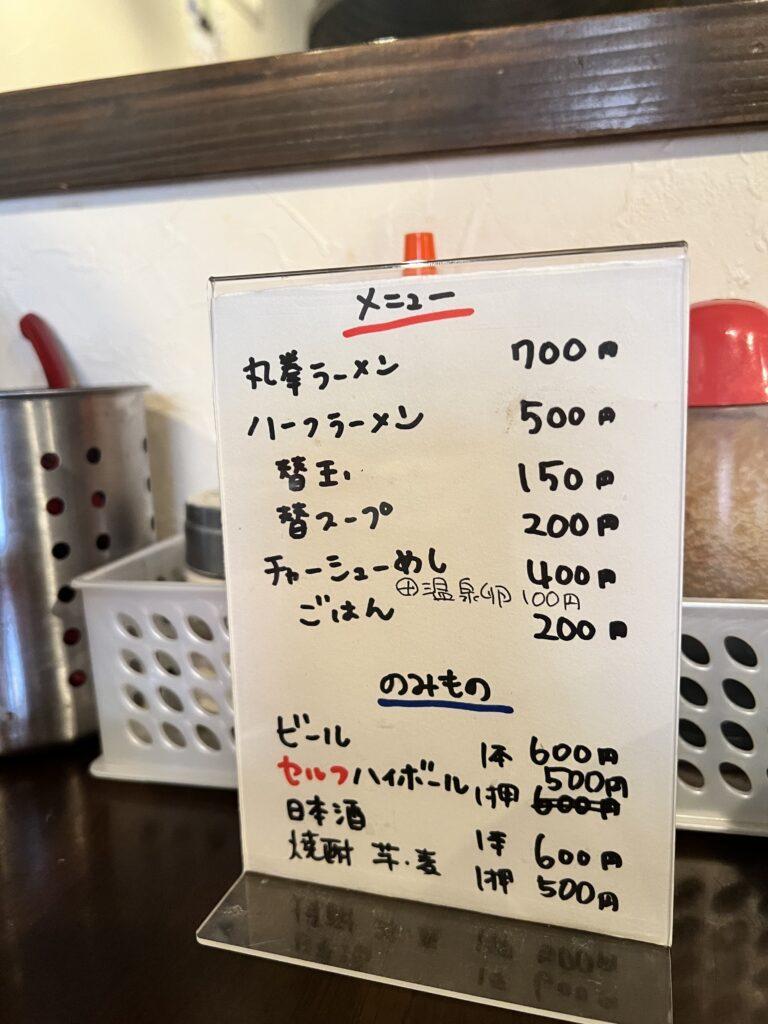 メニュー
丸拳ラーメン 700円
ハーフラーメン 500円
替玉 150円
替スープ 200円
チャーシューめし 400円
⊕温泉卵 100円
ごはん 200円
のみもの
ビール 1本 600円
500円
セルフハイボール 1押 600円
日本酒 1本 600円
焼酎 芋・麦 1押 500円